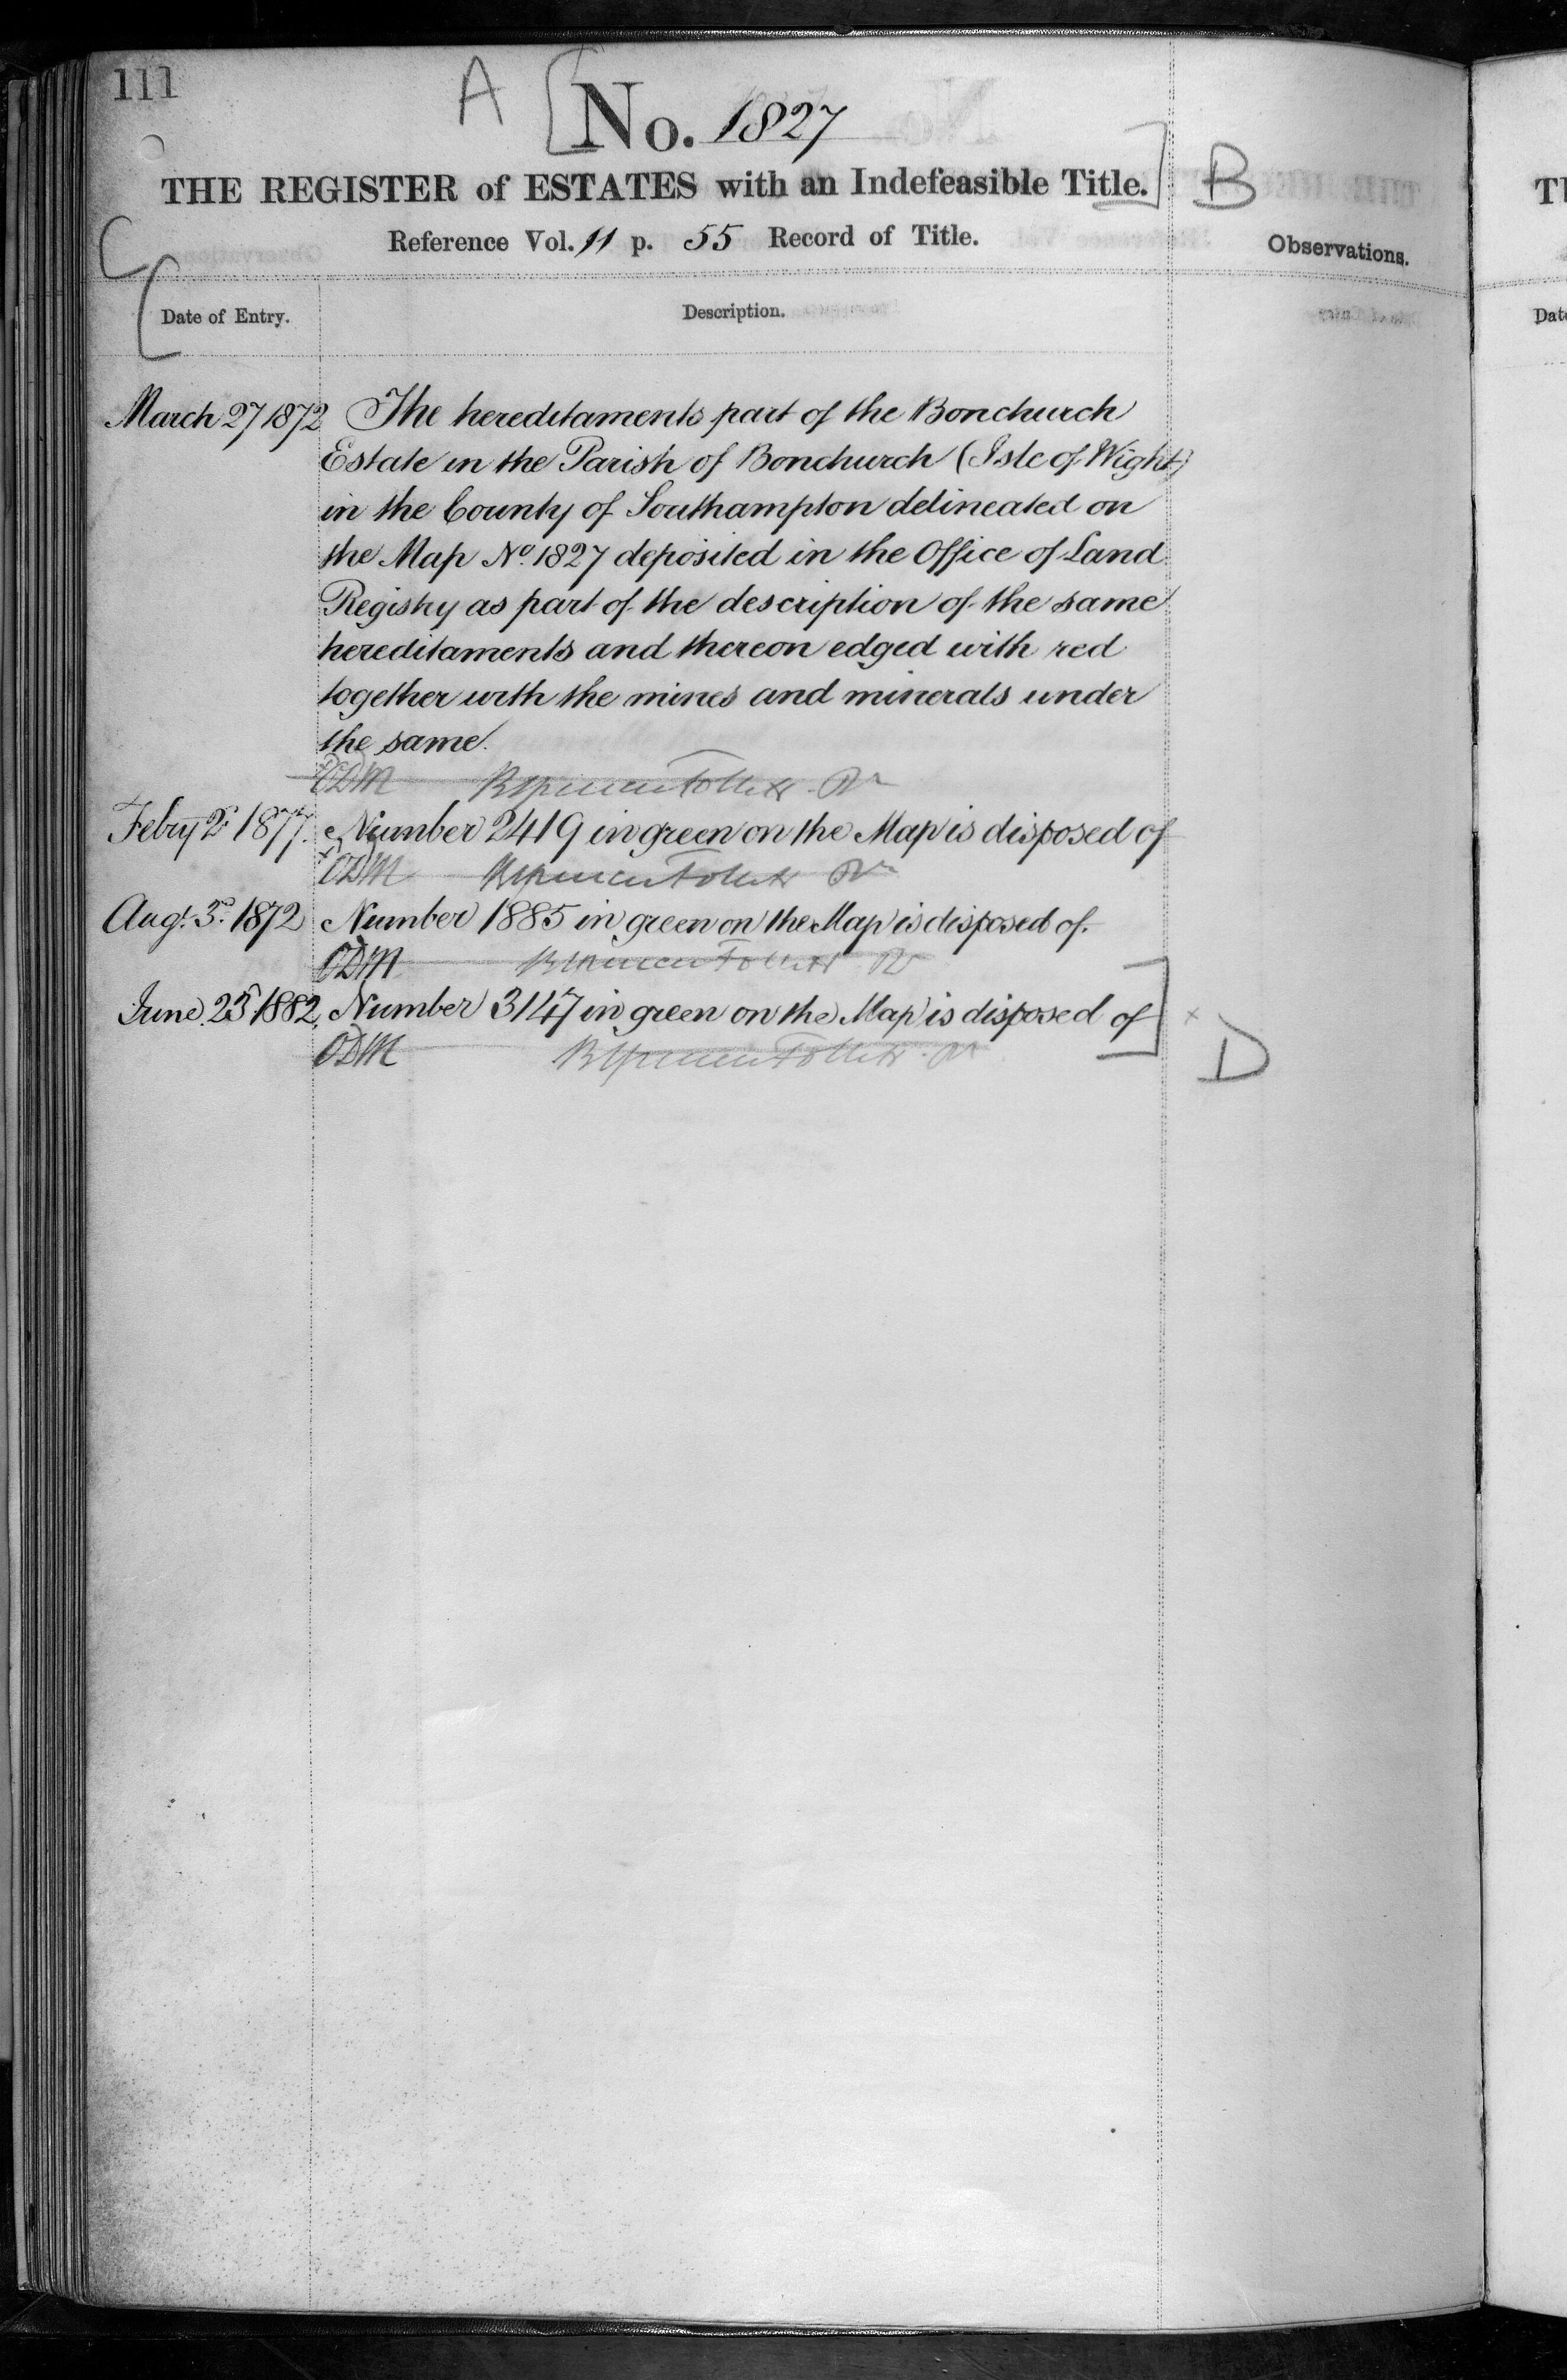 111
A
No. 1827
THE REGISTER of ESTATES with an Indefeasible Title.
B
Reference Vol. 11 p. 55 Record of Title.
C
Observations.
Date of Entry.
Description.
March 27 1872 The hereditaments part of the Bonchurch
Estate in the Parish of Bonchurch (Isle of Wight)
in the County of Southampton delineated on
the Map No. 1827 deposited in the Office of Land
Registry as part of the description of the same
hereditaments and thereon edged with red
together with the mines and minerals under
the same.
Follett
Febry 2d 1877. Number 2419 in green on the Map is disposed of
Follett
Augt. 3d. 1872 Number 1885 in green on the Map is disposed of.
ODM Follett
June 25 1882, Number 3147 in green on the Map is disposed of
D
ODM Follett
Th
Date